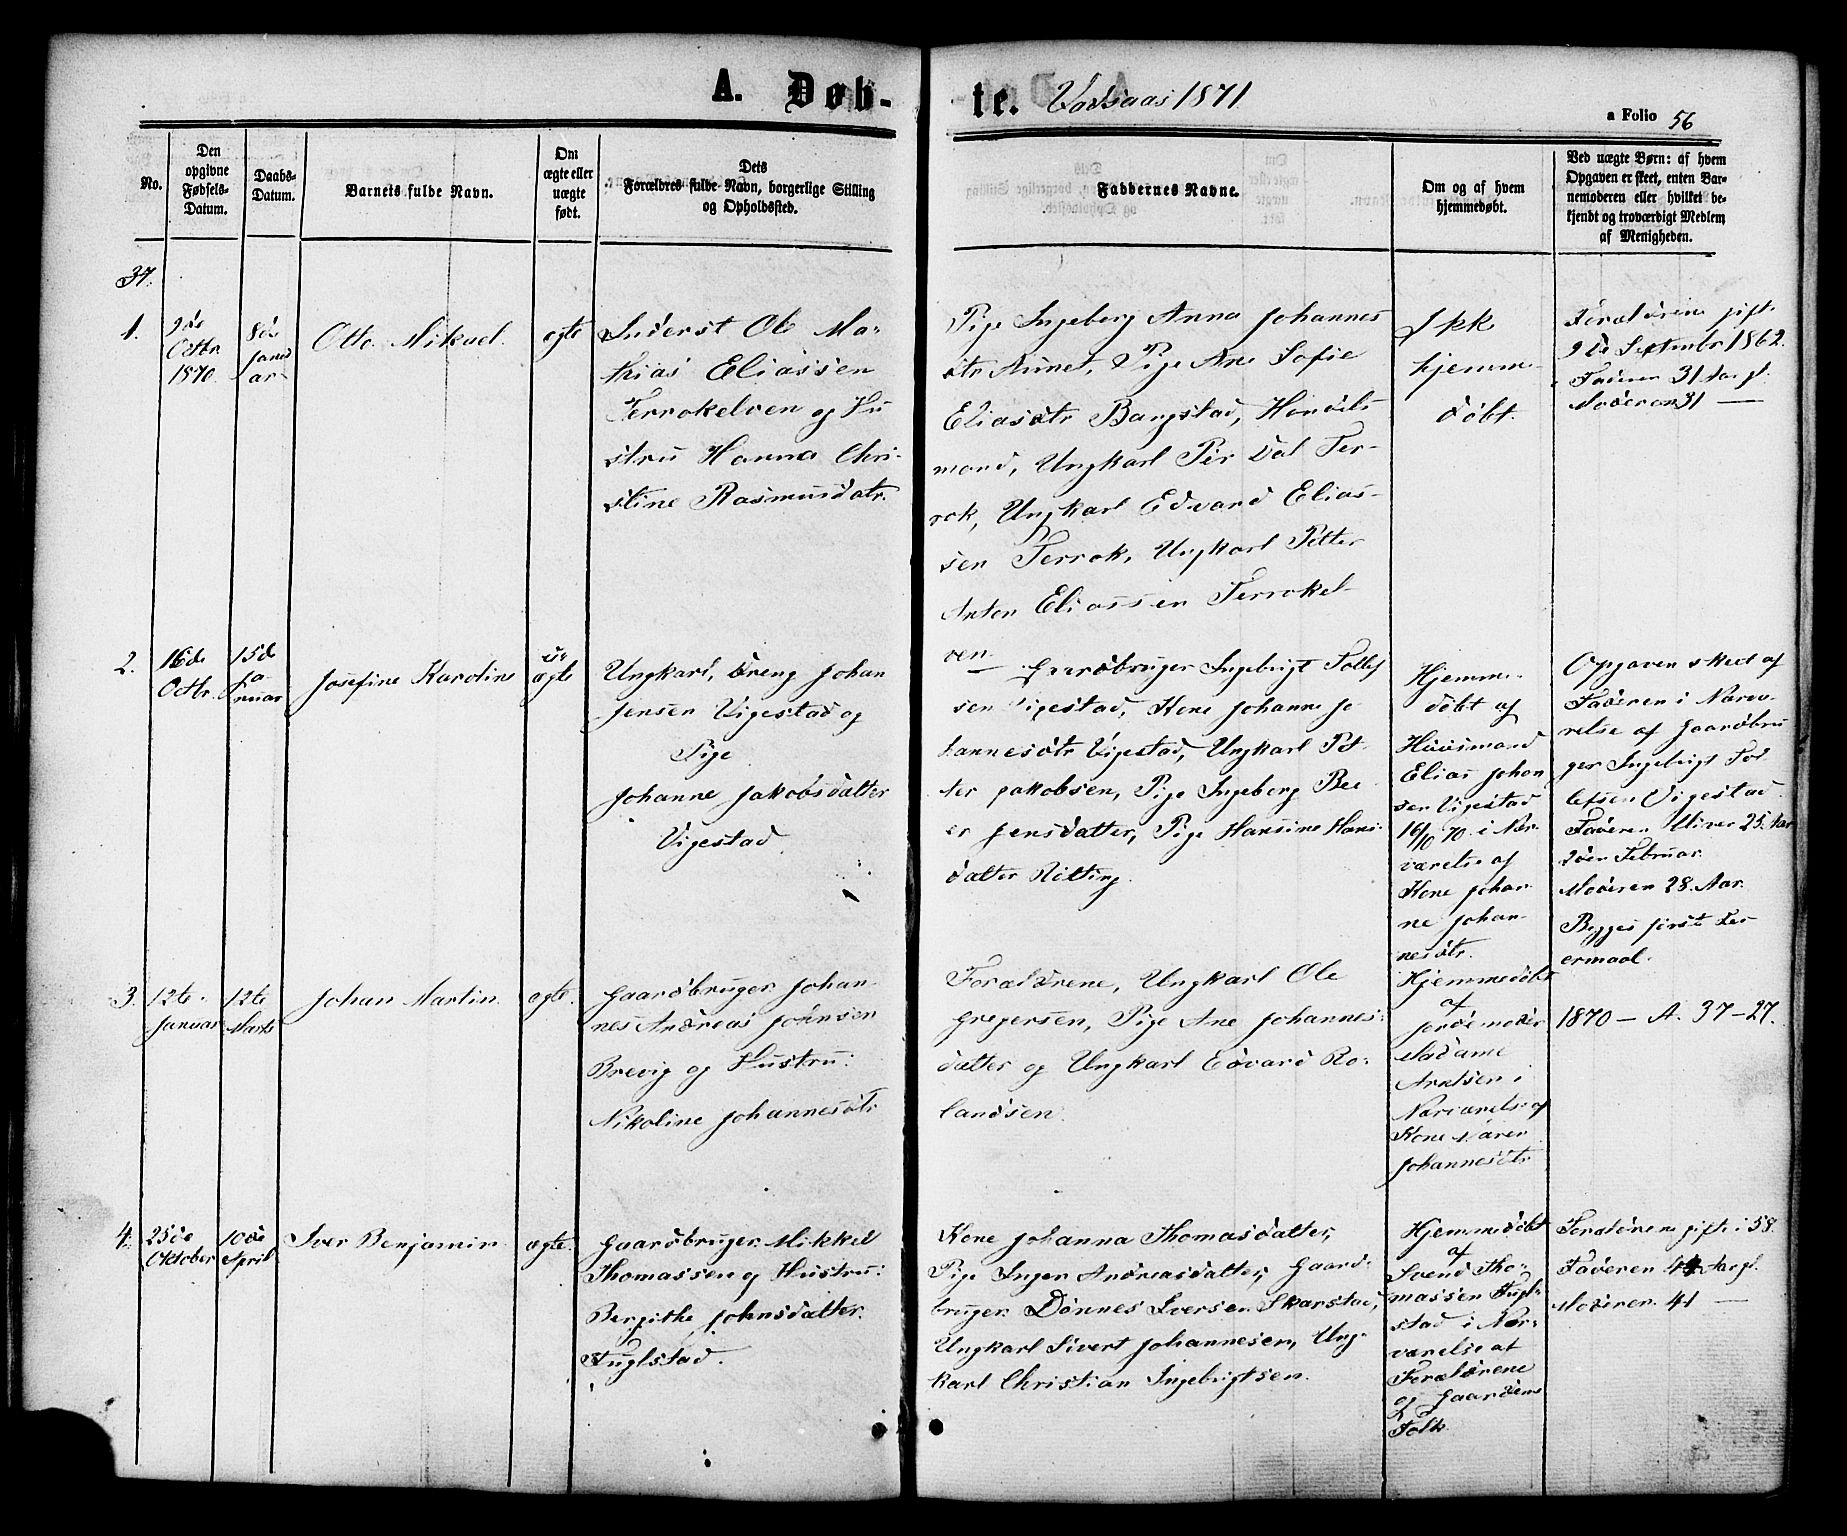 A. Døb-
te. Vadsaas 1871
a Folio 56
No.
Den
opgivne
Fødsels-
Datum.
Daabs-
Datum.
Barnets fulde Navn.
Om
ægte eller
uægte
født.
Dets
Forældres fulde Navn, borgerlige Stilling
og Opholdssted.
Faddernes Navne.
Om og af hvem
hjemmedøbt.
Ved uægte Børn: af hvem
Opgaven er skeet, enten Bar-
nemoderen eller hvilket be-
kjendt og troværdigt Medlem
af Menigheden.
37.
1.
9de
Octbr
1870.
8de
Janu
ar
Otto Mikael.
ægte
Inderst Ole Ma-
thias Eliassen
Terrokelven og Hu
stru Hanna Chri-
stine Rasmusdatr.
Pige Ingeberg Anna Johannes
dtr Aunet, Pige Ane Sofie
Eliasdtr Bangstad, Handels
mand, Ungkarl Per Dal Ter-
rok, Ungkarl Edvard Elias-
sen Terrok, Ungkarl Petter
Anton Eliassen Terrokel-
ven
Ikk
hjemme-
døbt.
Forældrene gift
9de Septembr 1862.
Faderen 31 Aar gl.
Moderen 31 —
2.
16de
Octbr.
15d
Ja
nuar
Josefine Karoline
u-
ægte
Ungkarl, Dreng Johan
Jensen Vigestad og
Pige
Johanne Jakobsdatter
Vigestad.
Gaardbruger Ingebrigt Tollef
sen Vigestad, Kone Johanne Jo
hannesdtr Vigestad, Ungkarl Pet-
ter Jakobsen, Pige Ingeberg Be-
er Jensdatter, Pige Hansine Hans-
datter Rötting.
Hjemme-
döbt af
Huusmand
Elias Johan
sen Vigestad
16/10 70. i Nær-
værelse af
Kone Johan
ne Johan-
nesdtr.
Opgaven skeet af
Faderen i Nærvæ-
relse af Gaardbru
ger Ingebrigt Tol
lefsen Vigestad
Faderen bliver 25 Aar
2den Februar.
Moderen 28. Aar.
Begges første Lei
ermaal.
3.
12te
Januar
12te
Marts
Johan Martin.
ægte.
Gaardbruger Johan-
nes Andreas Johnsen
Brevig og Hustru:
Nikoline Johannesdtr
Forældrene, Ungkarl Ole
Gregersen, Pige Ane Johannes-
datter og Ungkarl Edvard Ro-
landsen.
Hjemmedøbt
af
Jordemoder
Madame
Arntsen i
Nærværelse af
Kone Maren
Johannesdtr
1870 — A. 37—27.
4.
25de
Oktober
10de
April
Iver Benjamin
ægte.
Gaardbruger Mikkel
Thomassen og Hustru:
Bergithe Johnsdatter.
Fuglstad.
Kone Johanna Thomasdatter,
Pige Inger Andreasdatter, Gaard-
bruger Dønnes Iversen Skarstad,
Ungkarl Sivert Johannesen, Ung-
karl Christian Ingebrigtsen.
Hjemmedöbt
af
Svend Tho-
massen Fugl-
stad i Nær-
værelse af
Forældrene
og Gaardens
Folk.
Forældrene gifte i 58.
Faderen 44 Aar gl.
Moderen 41 —